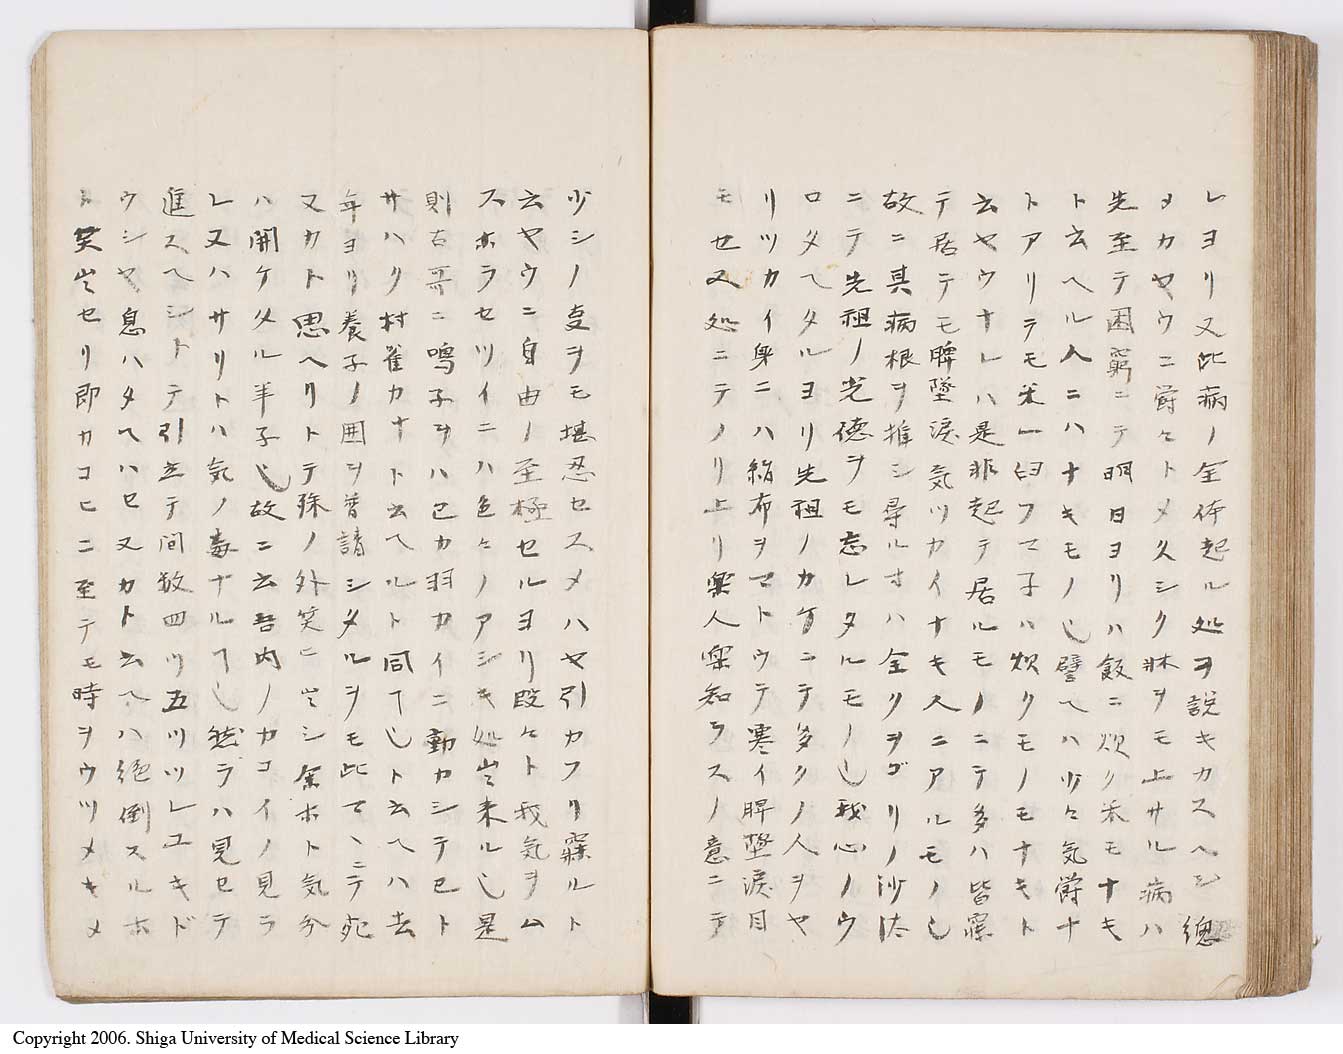 レヨリ又此病ノ全体起ル処ヲ説キカスヘシ総
メカヤウニ欝々トメ久シク牀ヲモ上サル病ハ
先至テ困窮ニテ明日ヨリハ飯ニ炊ク米モナキ
ト云ヘル人ニハナキモノ也譬ヘハ少々気欝ナ
トアリテモ米一臼フマ子ハ炊クモノモナキト
云ヤウナレハ是非起テ居ルモノニテ多ハ皆寐
テ居テモ睥墜涙気ツカイナキ人ニアルモノ也
故ニ其病根ヲ推シ尋ルオハ全クヲゴリノ沙汰
ニテ先祖ノ光徳ヲモ忘レタルモノ也我心ノウ
ロタヘタルヨリ先祖ノカケニテ多クノ人ヲヤ
リツカイ身ニハ絹布ヲマトウテ寒イ睥墜涙目
モセ又処ニテノリ上リ楽人楽知ラスノ意ニテ
少シノ夏ヲモ堪忍セスメハヤ引カフリ寐ルト
云ヤウニ自由ノ至極セルヨリ段々ト我気ヲム
スホラセツイニハ色々ノアシキ処出来ル也是
則古哥ニ鳴子ヲハ己カ羽カイニ動カシテ已ト
サハク村雀カナト云ヘルト同也ト云ヘハ去
年ヨリ養子ノ囲ヲ普請シタルヲモ此マヽニテ死
又カト思ヘリトテ殊ノ外笑ヒ出シ余ホト気分
ハ開ケタル半子也故ニ云吾内ノカコイノ見ラ
レ又ハサリトハ気ノ毒ナルヿ也然ラハ見セテ
進スヘシトテ引立テ間数四ツ五ツツレユキド
ウシヤ息ハタヘハセ又カト云ヘハ絶倒スルホ
笑出セリ即カコヒニ至テモ時ヲウツメキメ
Copyright 2006. Shiga University of Medical Science Library